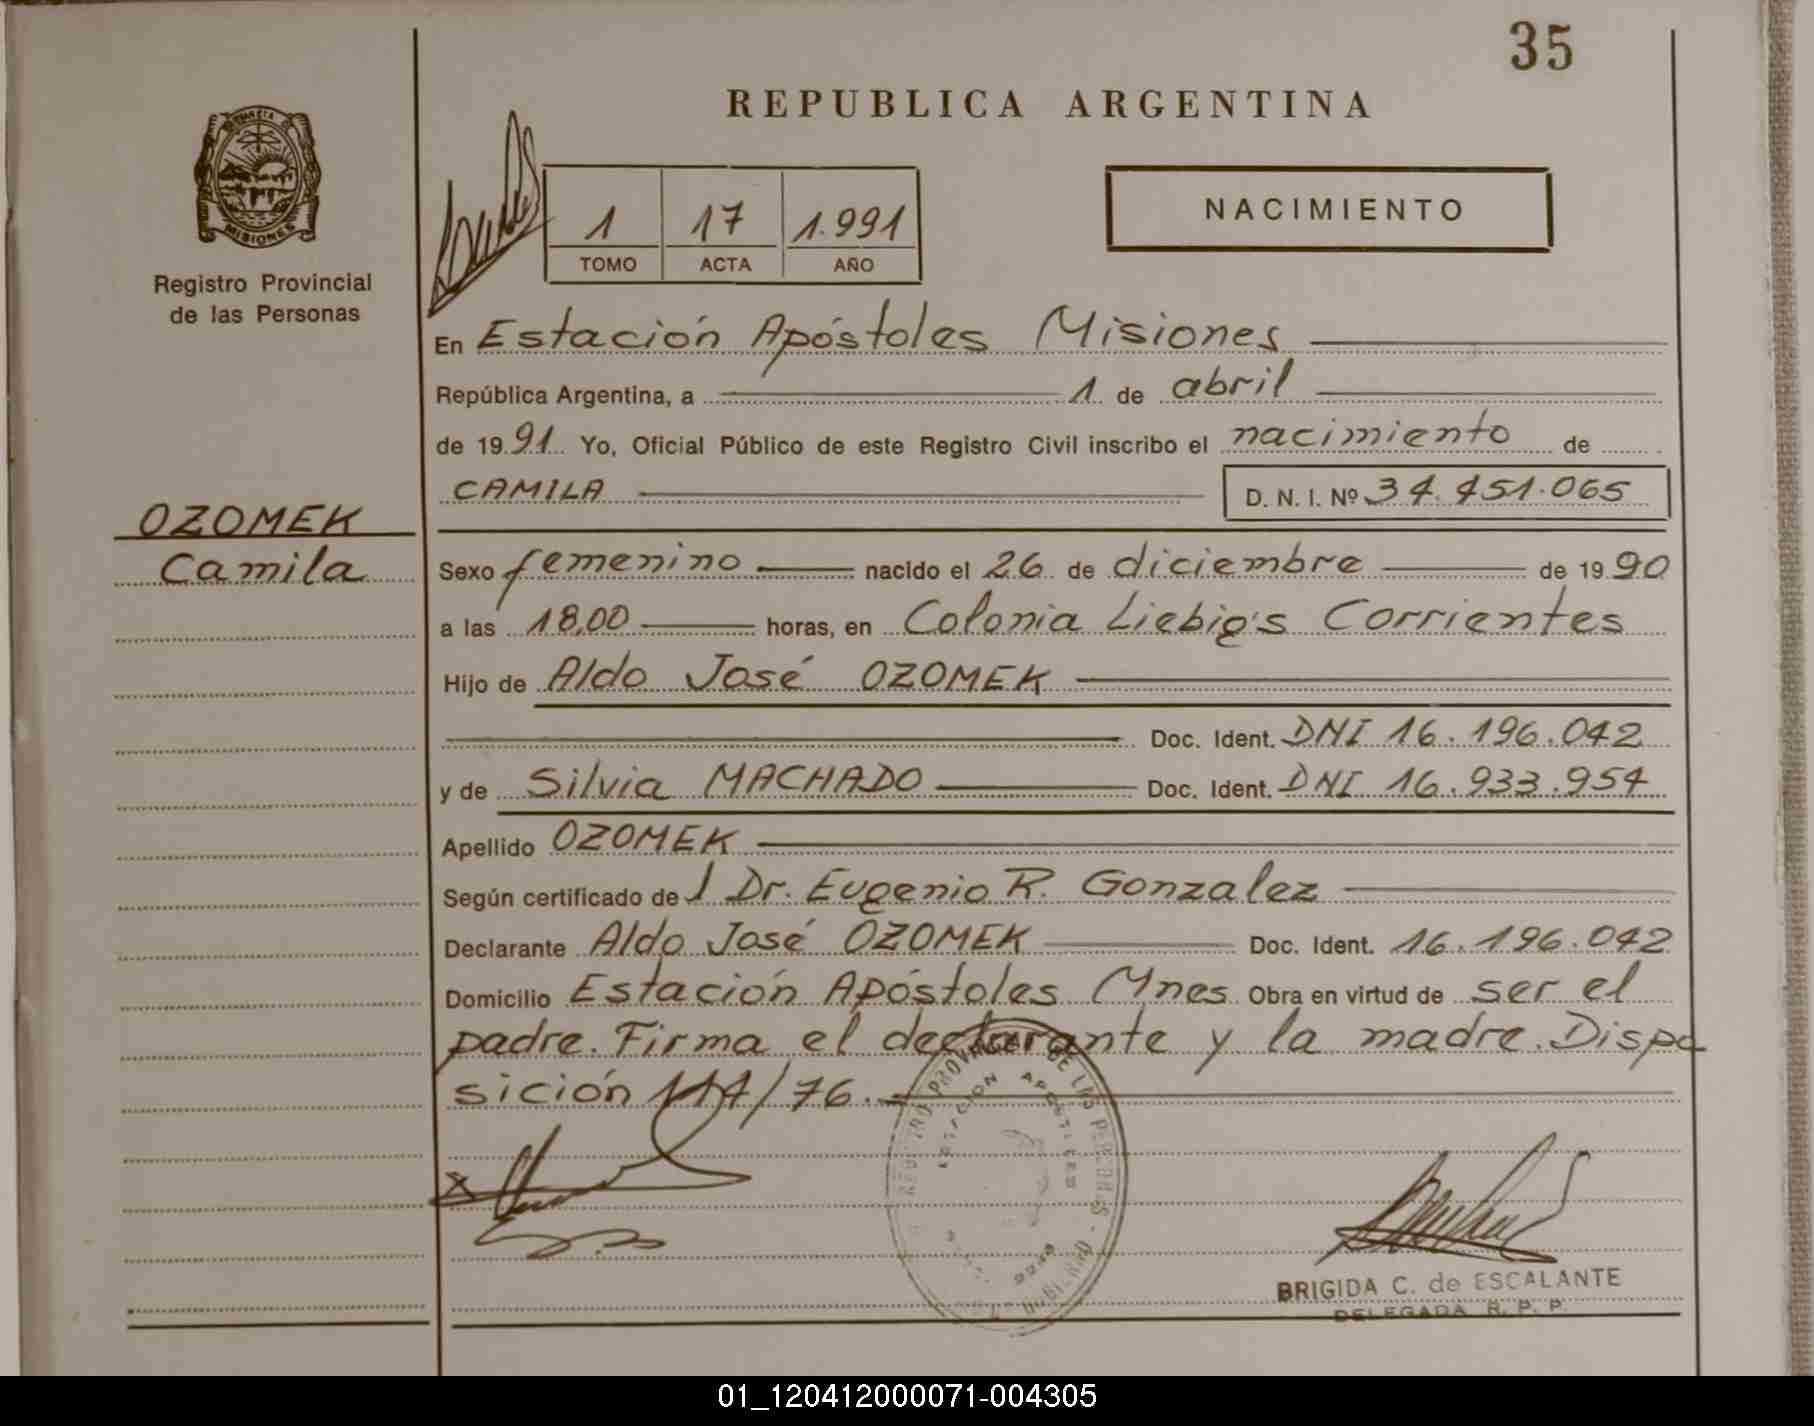 35
REPUBLICA ARGENTINA
MISIONES
Registro Provincial
de las Personas
1 17 1.991
TOMO ACTA AÑO
NACIMIENTO
En Estación Apóstoles Misiones
República Argentina, a 1 de abril
de 1991 Yo, Oficial Público de este Registro Civil inscribo el nacimiento de
CAMILA D. N. I. Nº 34.451.065
OZOMEK
Camila
Sexo femenino nacido el 26 de diciembre de 1990
a las 18,00 horas, en Colonia Liebig's Corrientes
Hijo de Aldo José OZOMEK
Doc. Ident. DNI 16.196.042
y de Silvia MACHADO Doc. Ident. DNI 16.933.954
Apellido OZOMEK
Según certificado de l Dr. Eugenio R. Gonzalez
Declarante Aldo José OZOMEK Doc. Ident. 16.196.042
Domicilio Estación Apóstoles Mnes Obra en virtud de ser el
padre. Firma el declarante y la madre. Dispo
sición 114/76.
REGISTRO PROVINCIAL DE LAS PERSONAS
ESTACION APOSTOLES
BRIGIDA C. de ESCALANTE
DELEGADA R. P. P.
01_120412000071-004305